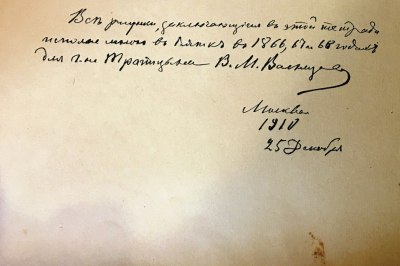 Всѣ рисунки, заключающіеся въ этой тетради
исполнены мною въ Вяткѣ въ 1866, 67 и 68 годахъ
для г-на Трапицына В. М. Васнецов
Москва
1910
25 Декабря